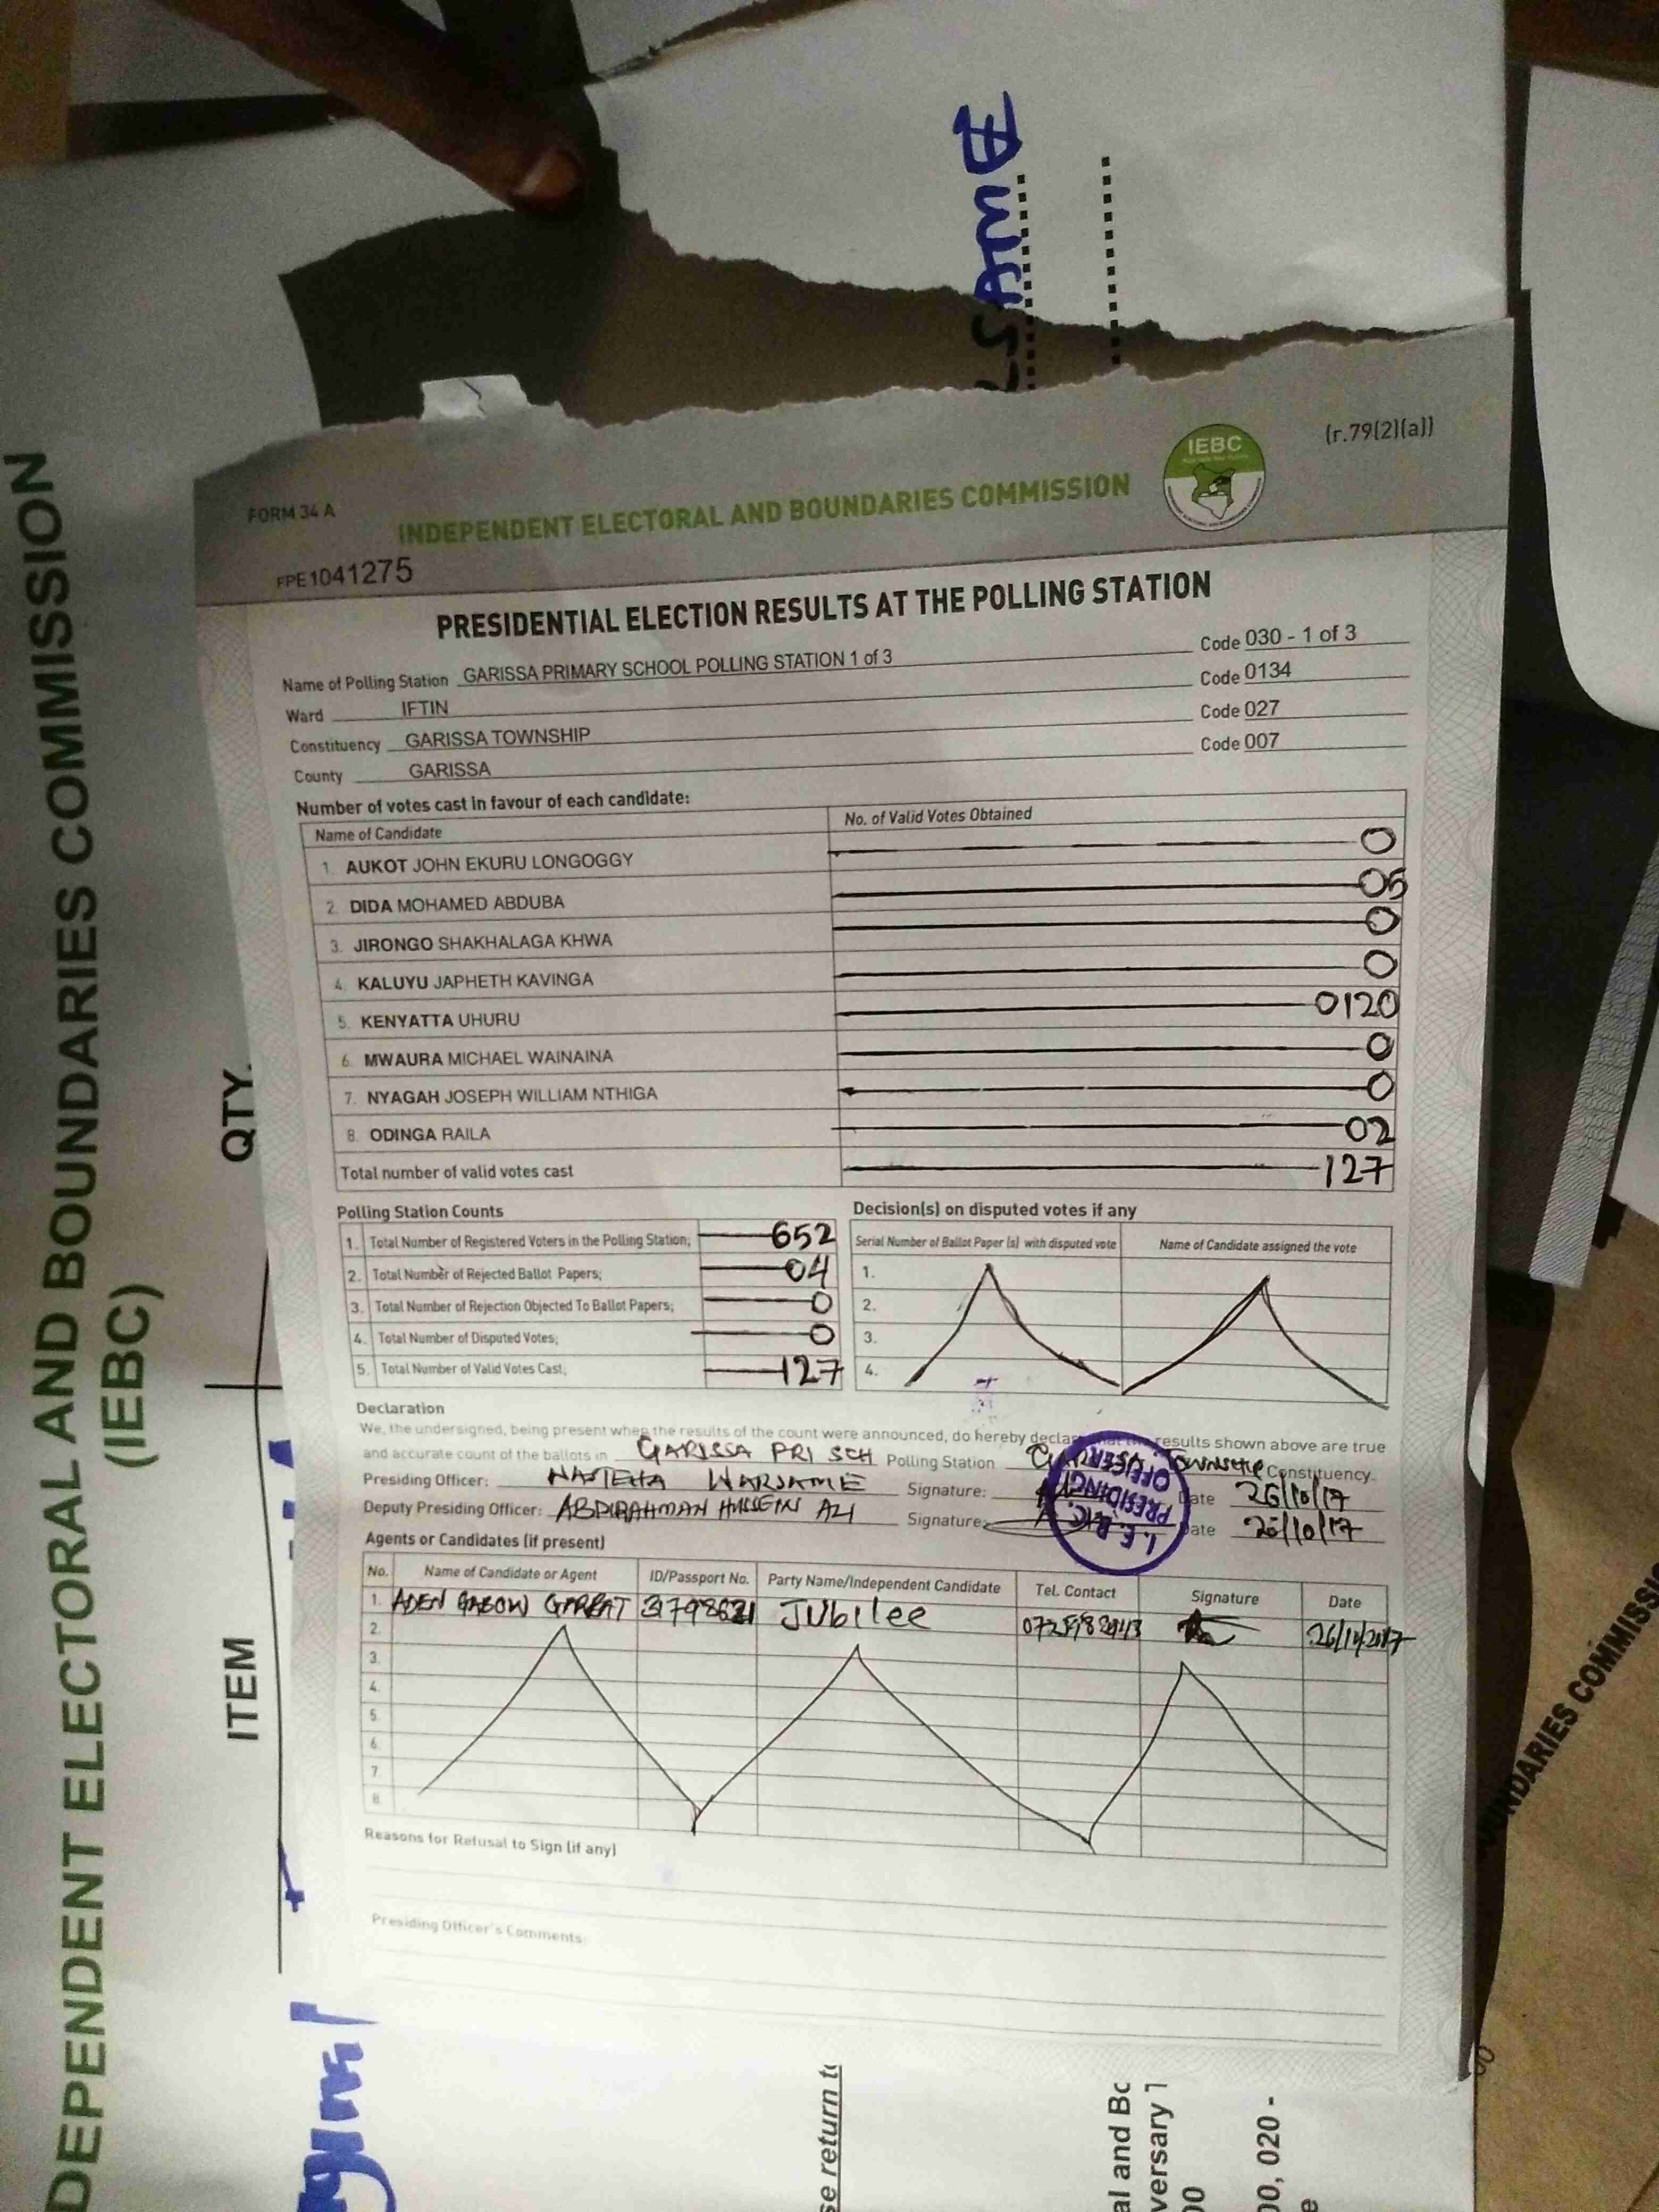 FORM 34 A
(r.79(2)(a))
IEBC
INDEPENDENT ELECTORAL AND BOUNDARIES COMMISSION
FPE1041275
PRESIDENTIAL ELECTION RESULTS AT THE POLLING STATION
Name of Polling Station GARISSA PRIMARY SCHOOL POLLING STATION 1 of 3 Code 030 - 1 of 3
Ward IFTIN Code 0134
Constituency GARISSA TOWNSHIP Code 027
County GARISSA Code 007
Number of votes cast in favour of each candidate:
Name of Candidate No. of Valid Votes Obtained
1. AUKOT JOHN EKURU LONGOGGY 0
2. DIDA MOHAMED ABDUBA 05
3. JIRONGO SHAKHALAGA KHWA 0
4. KALUYU JAPHETH KAVINGA 0
5. KENYATTA UHURU 0120
6. MWAURA MICHAEL WAINAINA 0
7. NYAGAH JOSEPH WILLIAM NTHIGA 0
8. ODINGA RAILA 02
Total number of valid votes cast 127
Polling Station Counts
1. Total Number of Registered Voters in the Polling Station; 652
2. Total Number of Rejected Ballot Papers; 04
3. Total Number of Rejection Objected To Ballot Papers; 0
4. Total Number of Disputed Votes; 0
5. Total Number of Valid Votes Cast; 127
Decision(s) on disputed votes if any
Serial Number of Ballot Paper (s) with disputed vote Name of Candidate assigned the vote
1.
2.
3.
4.
Declaration
We, the undersigned, being present when the results of the count were announced, do hereby declare that the results shown above are true
and accurate count of the ballots in GARISSA PRI SCH Polling Station Township Constituency.
Presiding Officer: WARSAME Signature: Date 26/10/17
Deputy Presiding Officer: ABDIRAHMAN HUSSEIN ALI Signature: Date 26/10/17
I.E.B.C.
PRESIDING
OFFICER
Agents or Candidates (if present)
No. Name of Candidate or Agent ID/Passport No. Party Name/Independent Candidate Tel. Contact Signature Date
1. ADEN Jubilee 26/10/2017
2.
3.
4.
5.
6.
7.
8.
Reasons for Refusal to Sign (if any)
Presiding Officer's Comments:
DEPENDENT ELECTORAL AND BOUNDARIES COMMISSION
(IEBC)
ITEM QTY.
se return to
al and Bo
versary T
00
00, 020 -
UNDARIES COMMISSI